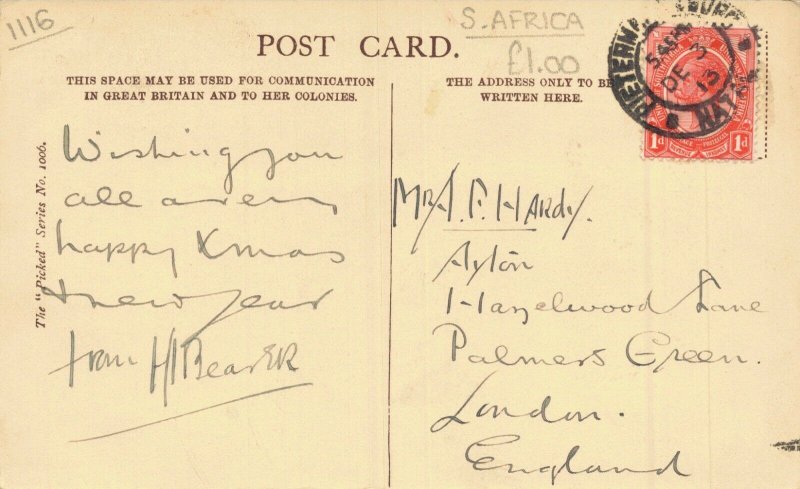 1116
S. AFRICA
£1.00
POST CARD.
THIS SPACE MAY BE USED FOR COMMUNICATION
IN GREAT BRITAIN AND TO HER COLONIES.
THE ADDRESS ONLY TO BE
WRITTEN HERE.
The "Picked" Series No. 1006.
Wishing you
all a very
happy Xmas
& new year
from H Beaver
Mr A. F. Hardy.
Ayton
Hazelwood Lane
Palmers Green.
London.
England
DE 3
13
NATAL
1d 1d